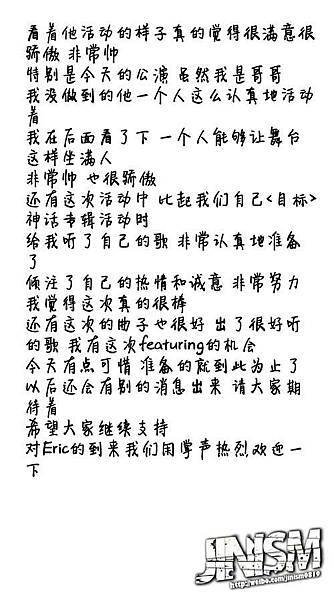 看着他活动的样子真的觉得很满意很
骄傲 非常帅
特别是今天的公演 虽然我是哥哥
我没做到的他一个人这么认真地活动
着
我在后面看了下 一个人能够让舞台
这样坐满人
非常帅 也很骄傲
还有这次活动中 比起我们自己<目标>
神话专辑活动时
给我听了自己的歌 非常认真地准备
了
倾注了自己的热情和诚意 非常努力
我觉得这次真的很棒
还有这次的曲子也很好 出了很好听
的歌 我有这次featuring的机会
今天有点可惜 准备的就到此为止了
以后还会有别的消息出来 请大家期
待着
希望大家继续支持
对Eric的到来我们用掌声热烈欢迎一
下
JINISM
http://weibo.com/jinism0819